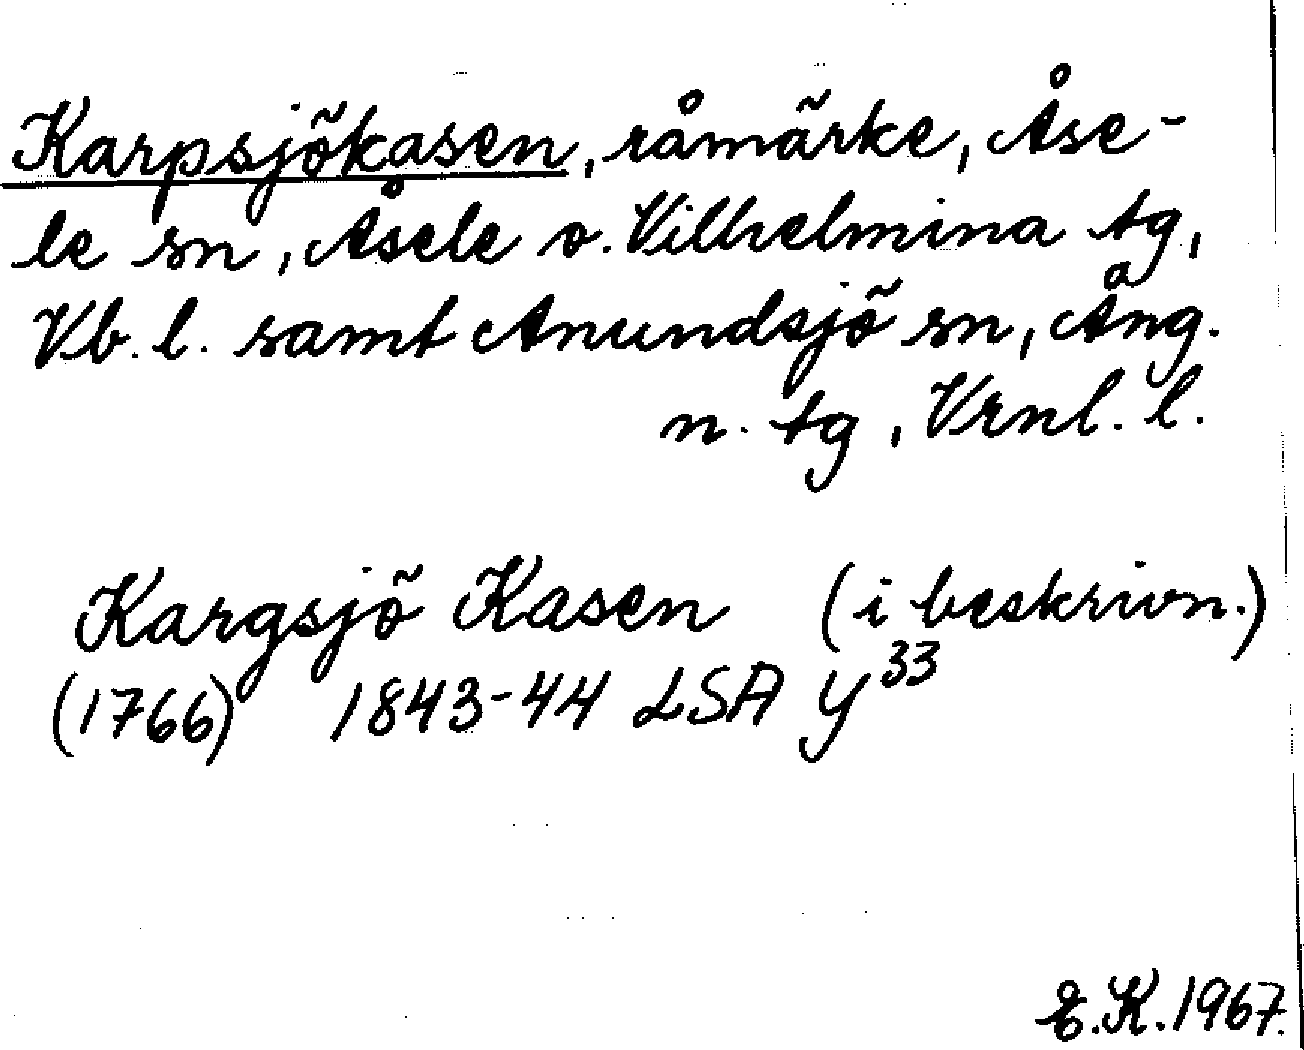 Karpsjökasen, råmärke, Åse-
le sn, Åsele o. Vilhelmina tg,
Vb. l. samt Anundsjö sn, Ång.
n. tg, Vrnl. l.
Kargsjö Kasen (i beskrivn.)
(1766) 1843-44 LSA Y³³
E.K. 1967.